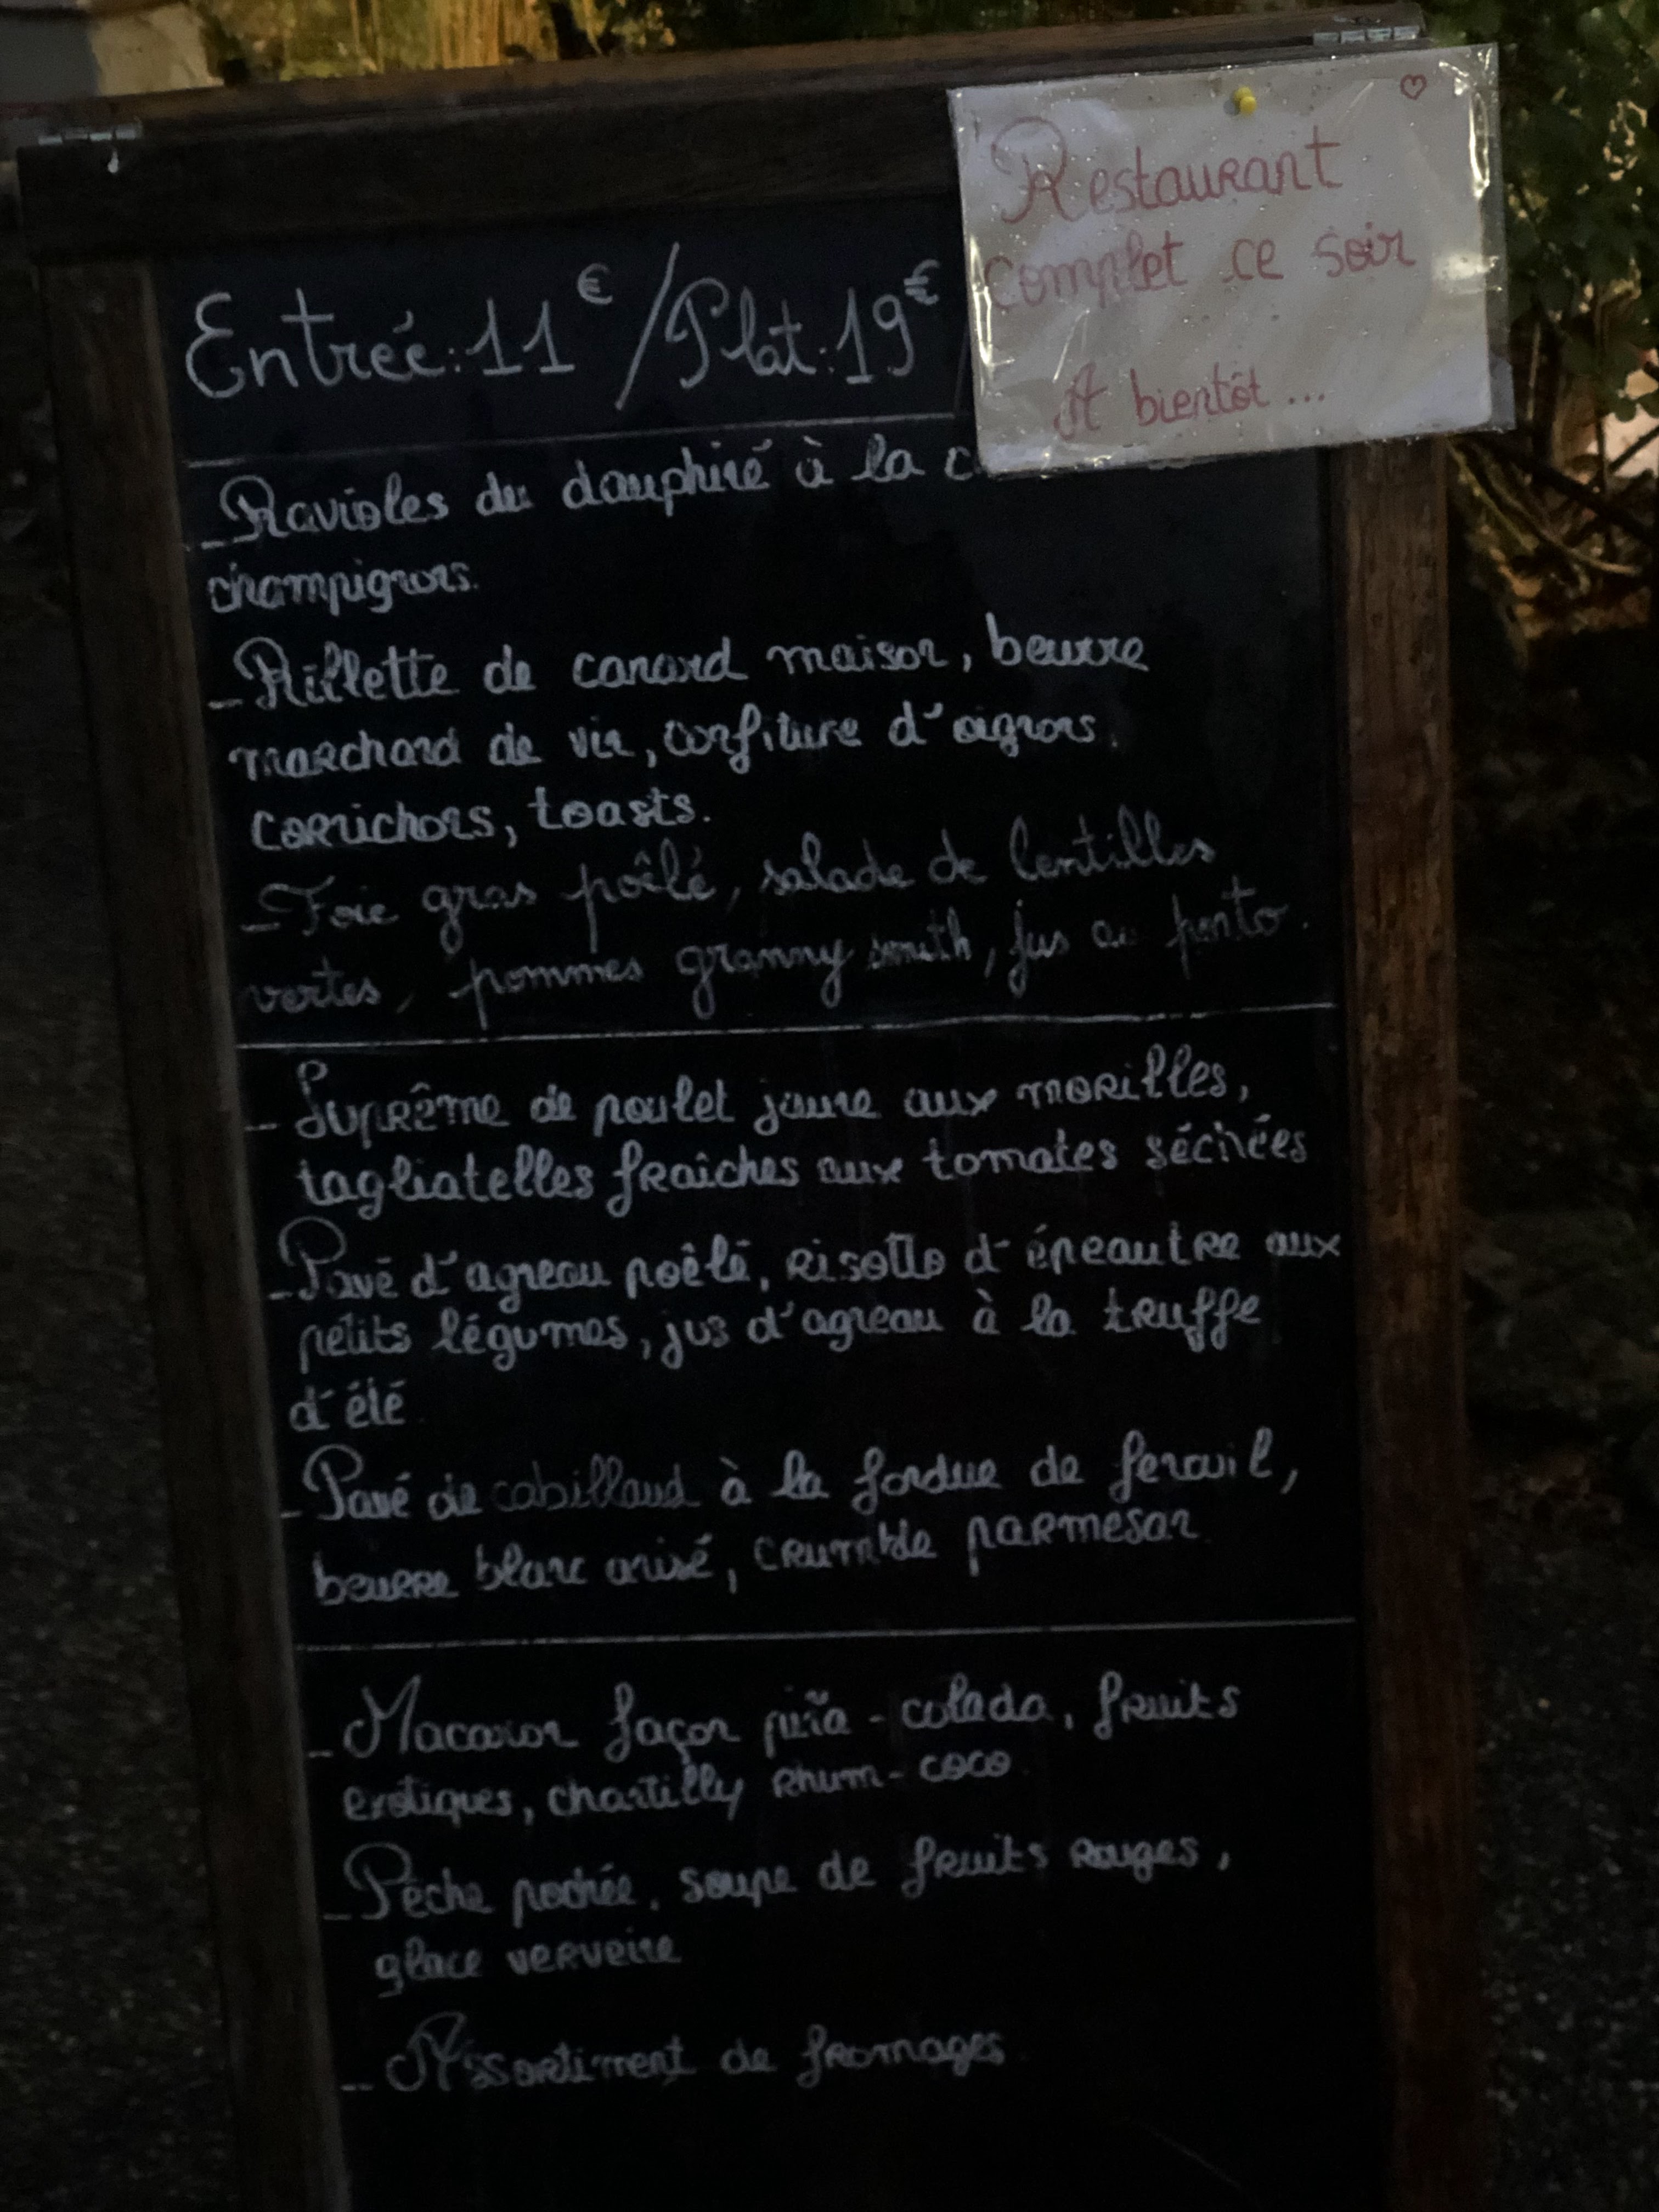 Restaurant
complet ce soir
A bientôt...
Entrée: 11€/Plat: 19€
- Ravioles du dauphiné à la c
champignons.
- Rillette de canard maison, beurre
marchand de vin, confiture d'oignons,
cornichons, toasts.
- Foie gras poêlé, salade de lentilles
vertes, pommes granny smith, jus au porto.
- Suprême de poulet jaune aux morilles,
tagliatelles fraîches aux tomates séchées
- Pavé d'agneau poêlé, risotto d'épeautre aux
petits légumes, jus d'agneau à la truffe
d'été.
- Pavé de cabillaud à la fondue de fenouil,
beurre blanc anisé, crumble parmesan
- Macaron façon piña-colada, fruits
exotiques, chantilly rhum-coco.
- Pêche pochée, soupe de fruits rouges,
glace verveine
- Assortiment de fromages